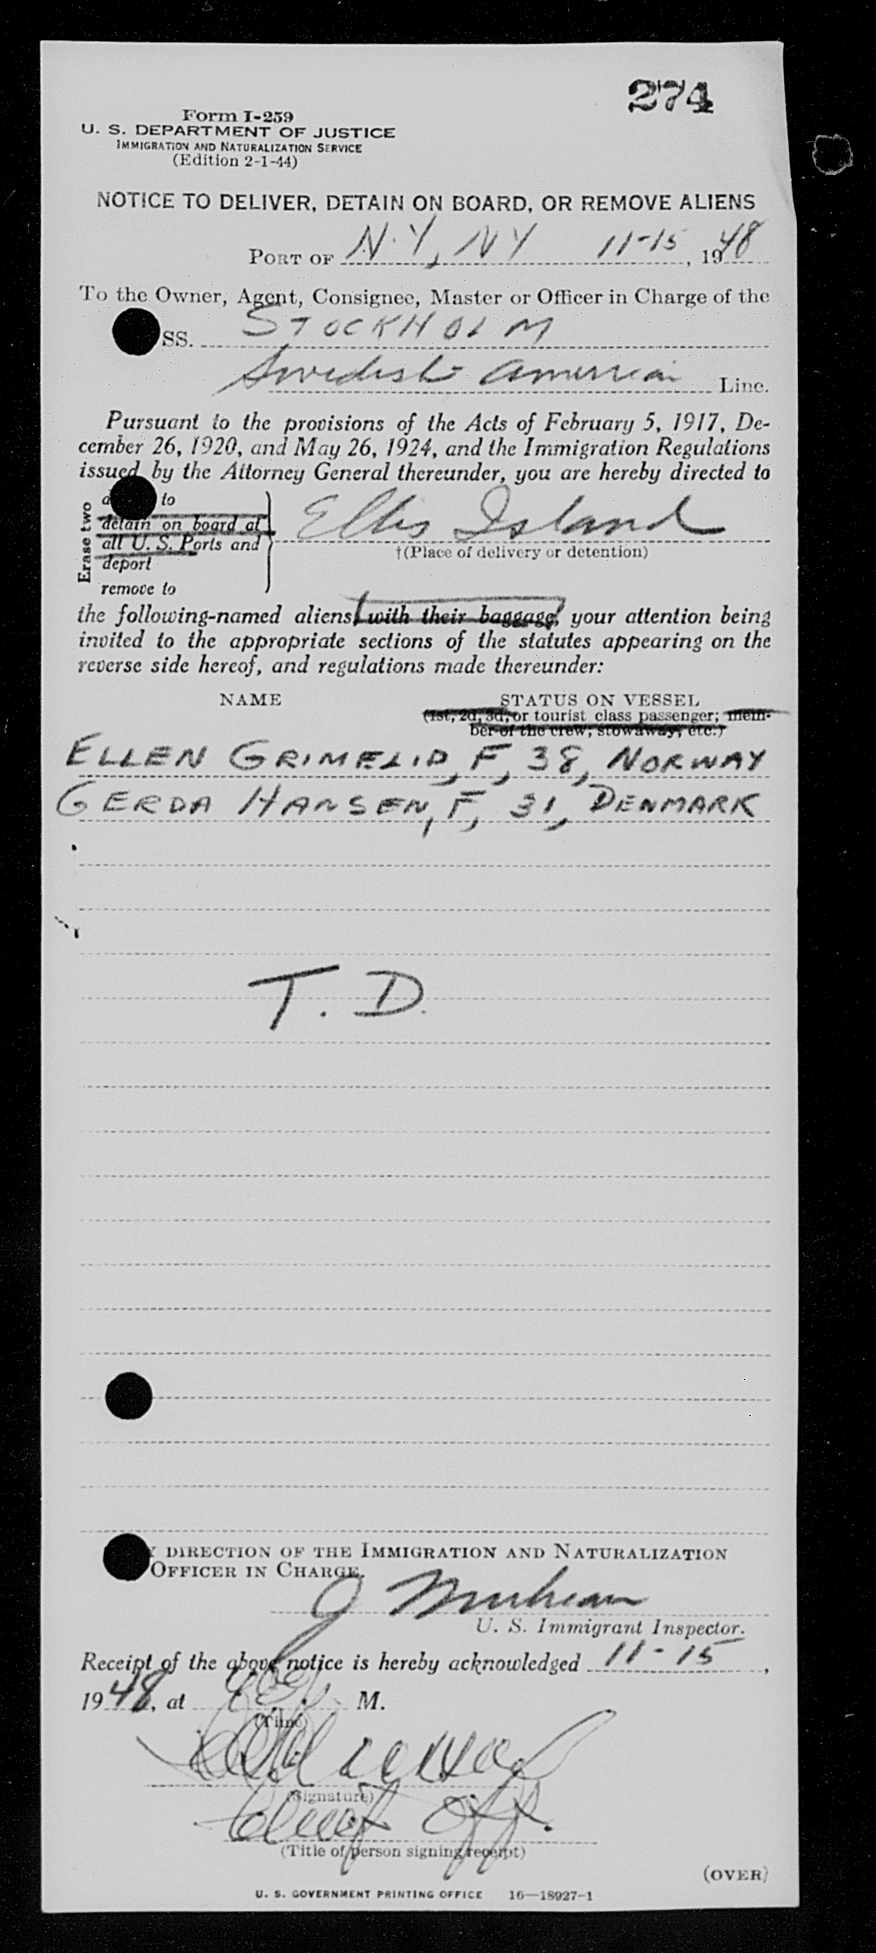 274
Form I-259
U. S. DEPARTMENT OF JUSTICE
IMMIGRATION AND NATURALIZATION SERVICE
(Edition 2-1-44)
NOTICE TO DELIVER, DETAIN ON BOARD, OR REMOVE ALIENS
PORT OF N.Y, NY 11-15, 1948
To the Owner, Agent, Consignee, Master or Officer in Charge of the
SS. STOCKHOLM
Swedish American Line.
Pursuant to the provisions of the Acts of February 5, 1917, De-
cember 26, 1920, and May 26, 1924, and the Immigration Regulations
issued by the Attorney General thereunder, you are hereby directed to
Erase two
to
detain on board at
all U. S. Ports and
deport
remove to
Ellis Island
†(Place of delivery or detention)
the following-named aliens, with their baggage, your attention being
invited to the appropriate sections of the statutes appearing on the
reverse side hereof, and regulations made thereunder:
NAME STATUS ON VESSEL
(1st, 2d, 3d, or tourist class passenger; mem-
ber of the crew; stowaway; etc.)
ELLEN GRIMELID, F, 38, NORWAY
GERDA HANSEN, F, 31, DENMARK
T. D.
DIRECTION OF THE IMMIGRATION AND NATURALIZATION
OFFICER IN CHARGE.
J
U. S. Immigrant Inspector.
Receipt of the above notice is hereby acknowledged 11-15,
1948, at M.
(Time)
(Signature)
Chief Off.
(Title of person signing receipt)
(OVER)
U. S. GOVERNMENT PRINTING OFFICE 16—18927-1